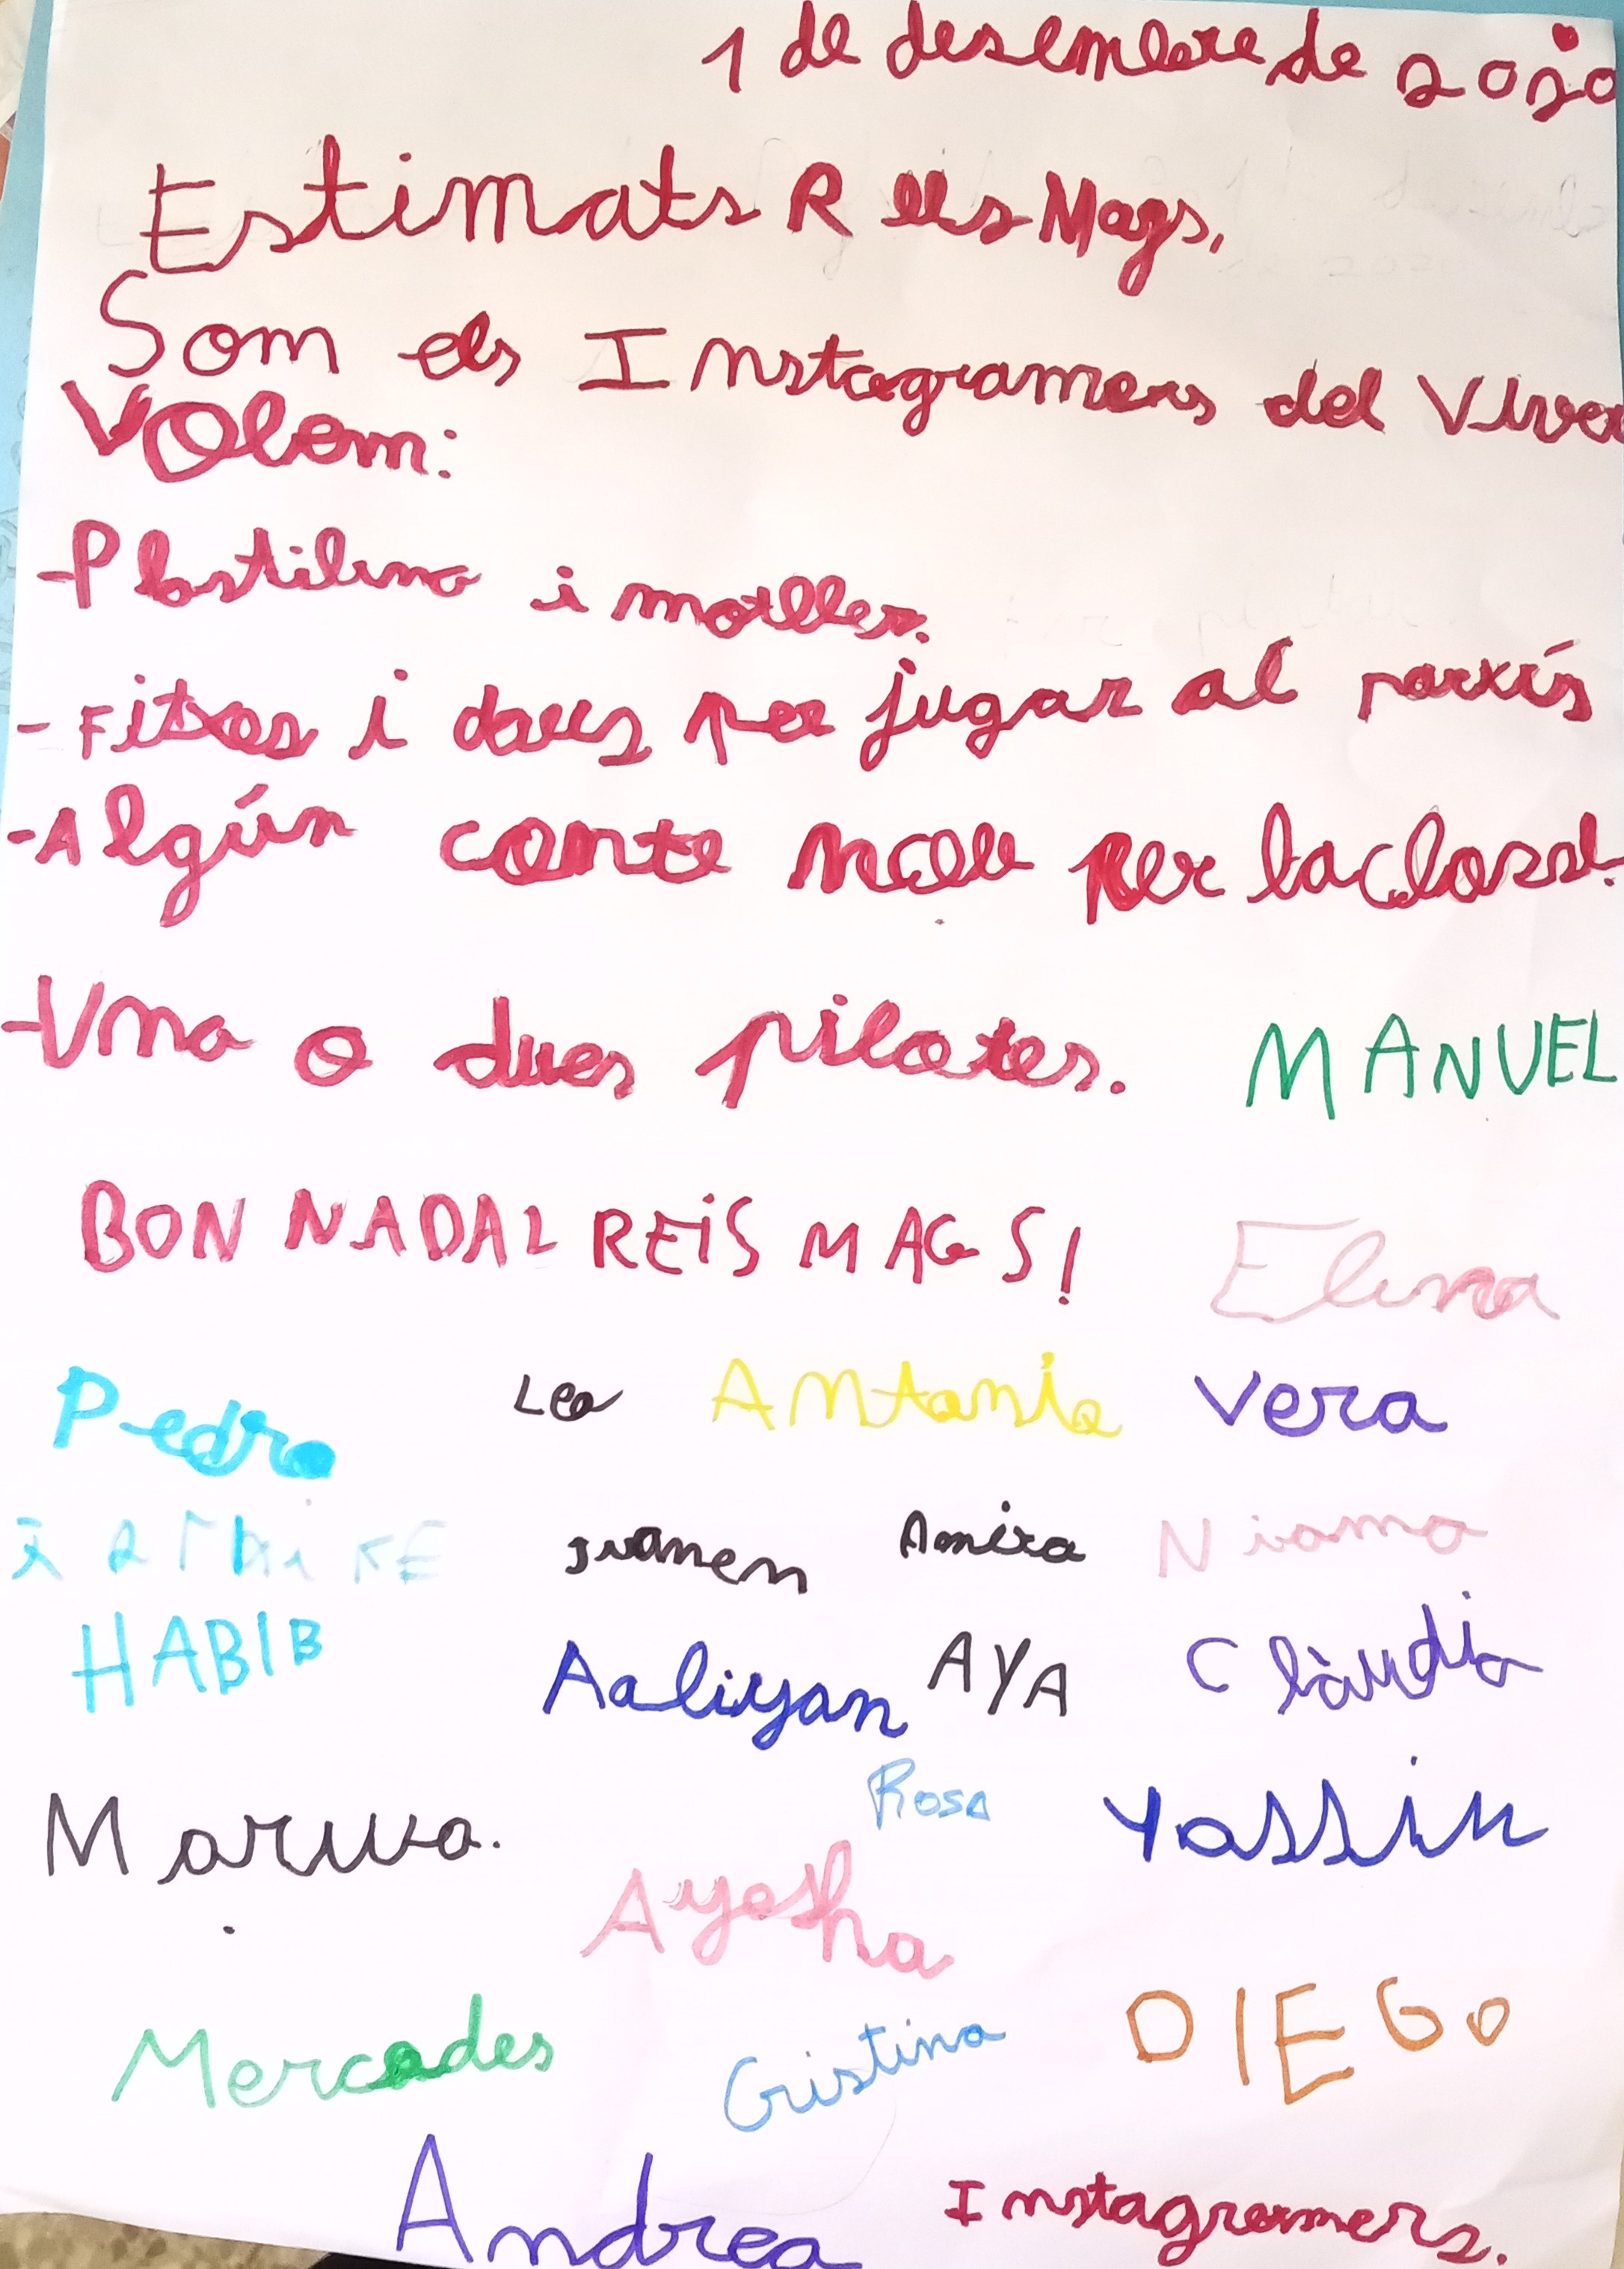 1 de desembre de 2020
Estimats Reis Mags,
Som els Instagramers del Viver
Volem:
-Plastilina i motlles.
-Fitxes i daus per jugar al parxís
-Algún conte nou per la classe.
-Una o dues pilotes. MANUEL
BON NADAL REIS MAGS! Elena
Pedro Leo Antonia Vera
Amira Niama
HABIB Aaliyan AYA Clàudia
Marwa. Rosa Yassin
Ayesha
Mercedes Cristina DIEGO
Andrea Instagramers.